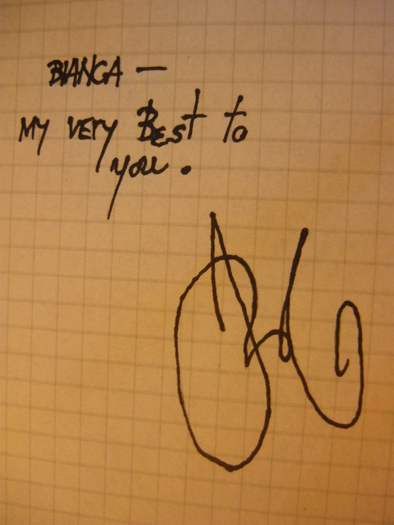 BIANCA —
MY VERY BEST to
you.